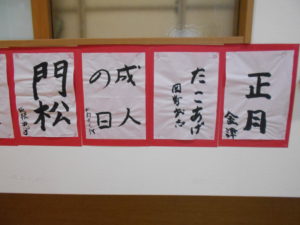 門松
成人
の日
たこあげ
正月
金澤